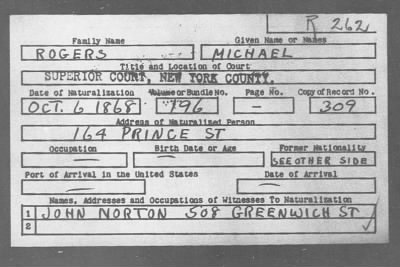 R 262
Family Name Given Name or Names
ROGERS MICHAEL
Title and Location of Court
SUPERIOR COURT, NEW YORK COUNTY.
Date of Naturalization Volume or Bundle No. Page No. Copy of Record No.
OCT. 6 1868 196 — 309
Address of Naturalized Person
164 PRINCE ST
Occupation Birth Date or Age Former Nationality
— — SEE OTHER SIDE
Port of Arrival in the United States Date of Arrival
— —
Names, Addresses and Occupations of Witnesses To Naturalization
1 JOHN NORTON 508 GREENWICH ST
2